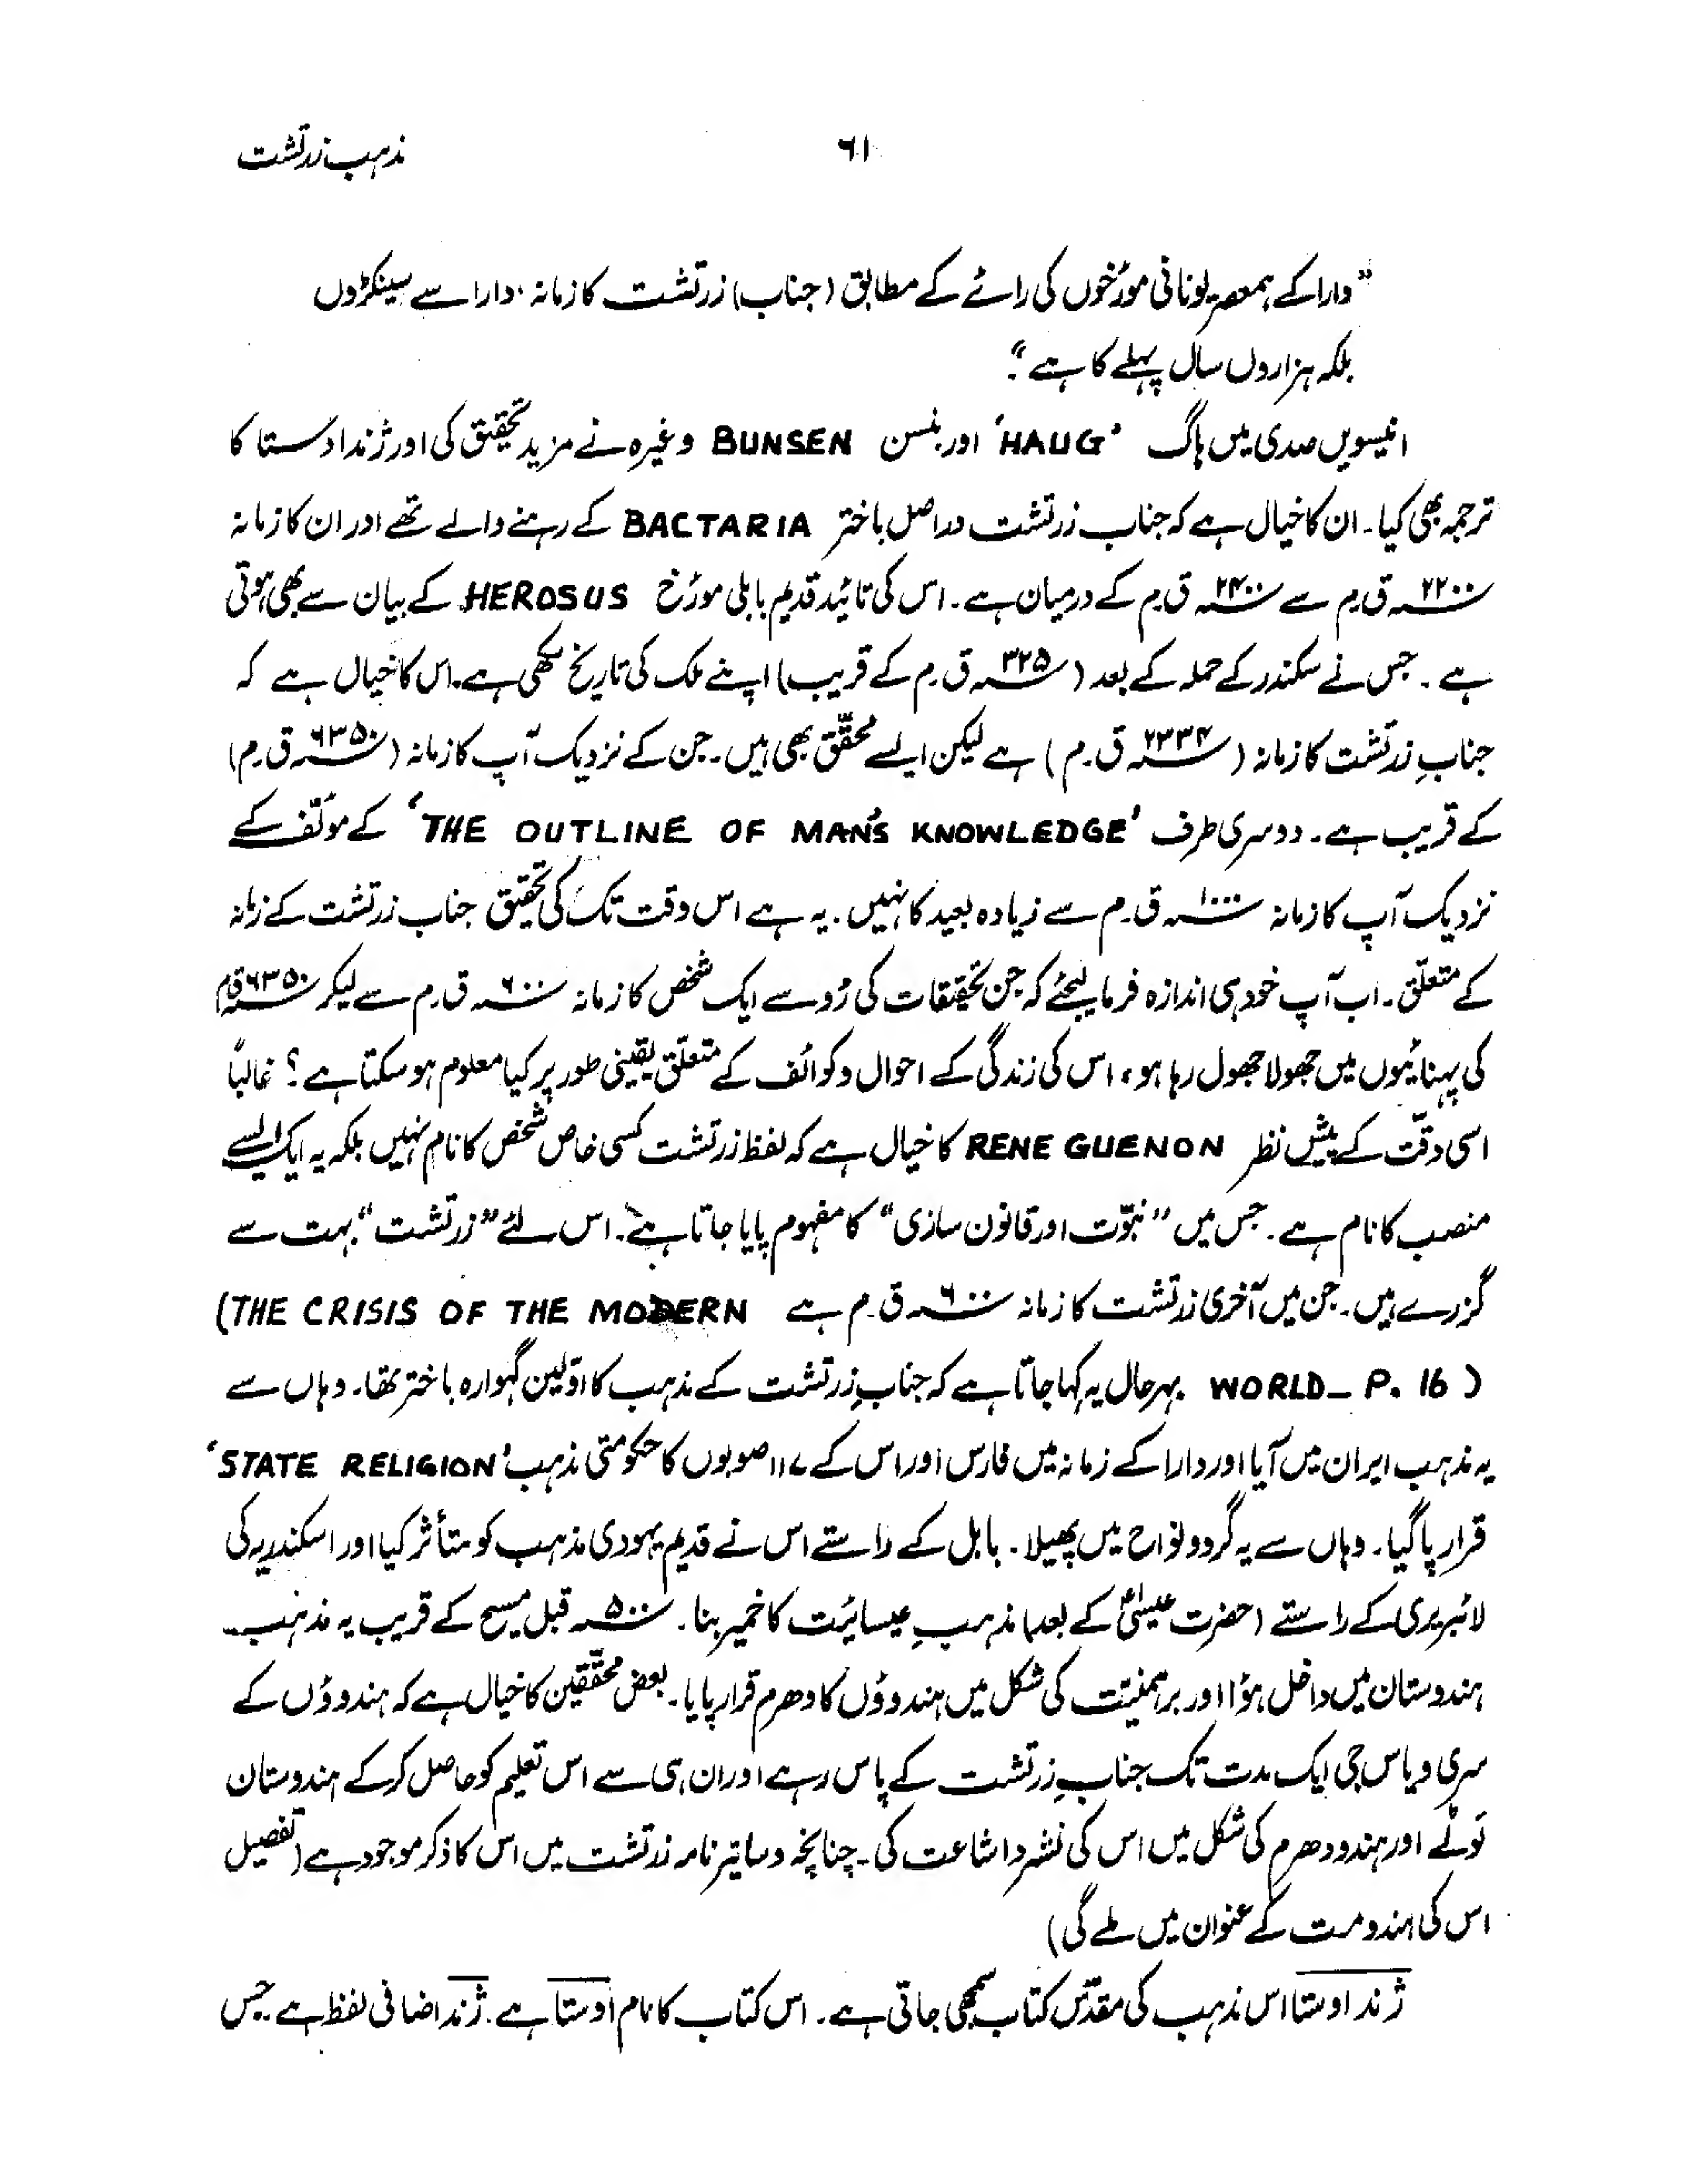 مذہب زرتشت
۶۱
"دارا کے ہمعصر یونانی مورّخوں کی رائے کے مطابق (جناب) زرتشت کا زمانہ، دارا سے سینکڑوں
بلکہ ہزاروں سال پہلے کا ہے"۔
انیسویں صدی میں ہاگ 'HAUG' اور بنسن BUNSEN وغیرہ نے مزید تحقیق کی اور ژند اوستا کا
ترجمہ بھی کیا۔ ان کا خیال ہے کہ جناب زرتشت دراصل باختر BACTARIA کے رہنے والے تھے اور ان کا زمانہ
۲۲۰۰؁ ق۔م سے ۲۴۰۰؁ ق۔م کے درمیان ہے۔ اس کی تائید قدیم بابلی مورّخ HEROSUS کے بیان سے بھی ہوتی
ہے۔ جس نے سکندر کے حملہ کے بعد (۳۲۵؁ ق۔م کے قریب) اپنے ملک کی تاریخ لکھی ہے۔ اس کا خیال ہے کہ
جنابِ زرتشت کا زمانہ (۲۳۳۴؁ ق۔م) ہے لیکن ایسے محقّق بھی ہیں۔ جن کے نزدیک آپ کا زمانہ (۶۳۵۰؁ ق۔م)
کے قریب ہے۔ دوسری طرف 'THE OUTLINE OF MAN'S KNOWLEDGE' کے مؤلّف کے
نزدیک آپ کا زمانہ ۱۰۰۰؁ ق۔م سے زیادہ بعید کا نہیں۔ یہ ہے اس وقت تک کی تحقیق جناب زرتشت کے زمانہ
کے متعلّق۔ اب آپ خود ہی اندازہ فرما لیجئے کہ جن تحقیقات کی رُو سے ایک شخص کا زمانہ ۶۰۰؁ ق۔م سے لیکر ۶۳۵۰؁ ق م
کی پہنائیوں میں جھولا جھول رہا ہو، اس کی زندگی کے احوال و کوائف کے متعلّق یقینی طور پر کیا معلوم ہو سکتا ہے؟ غالباً
اسی دقّت کے پیش نظر RENE GUENON کا خیال ہے کہ لفظ زرتشت کسی خاص شخص کا نام نہیں بلکہ یہ ایک ایسے
منصب کا نام ہے۔ جس میں "نبوّت اور قانون سازی" کا مفہوم پایا جاتا ہے۔ اس لئے "زرتشت" بہت سے
گزرے ہیں۔ جن میں آخری زرتشت کا زمانہ ۶۰۰؁ ق۔م ہے (THE CRISIS OF THE MODERN
WORLD_ P. 16) بہرحال یہ کہا جاتا ہے کہ جنابِ زرتشت کے مذہب کا اوّلین گہوارہ باختر تھا۔ وہاں سے
یہ مذہب ایران میں آیا اور دارا کے زمانہ میں فارس اور اس کے ۱۱۷ صوبوں کا حکومتی مذہب 'STATE RELIGION'
قرار پا گیا۔ وہاں سے یہ گرد و نواح میں پھیلا۔ بابل کے راستے اس نے قدیم یہودی مذہب کو متأثر کیا اور اسکندریہ کی
لائبریری کے راستے (حضرت عیسیٰؑ کے بعد) مذہبِ عیسائیت کا خمیر بنا۔ ۵۰۰؁ قبل مسیح کے قریب یہ مذہب
ہندوستان میں داخل ہؤا اور برہمنیّت کی شکل میں ہندوؤں کا دھرم قرار پایا۔ بعض محقّقین کا خیال ہے کہ ہندوؤں کے
سری ویاس جی ایک مدت تک جنابِ زرتشت کے پاس رہے اور ان ہی سے اس تعلیم کو حاصل کر کے ہندوستان
لَوٹے اور ہندو دھرم کی شکل میں اس کی نشر و اشاعت کی۔ چنانچہ دساتیر نامہ زرتشت میں اس کا ذکر موجود ہے (تفصیل
اس کی ہندومت کے عنوان میں ملے گی)
ژند اوستا اس مذہب کی مقدّس کتاب سمجھی جاتی ہے۔ اس کتاب کا نام اوستا ہے۔ ژند اضافی لفظ ہے جس